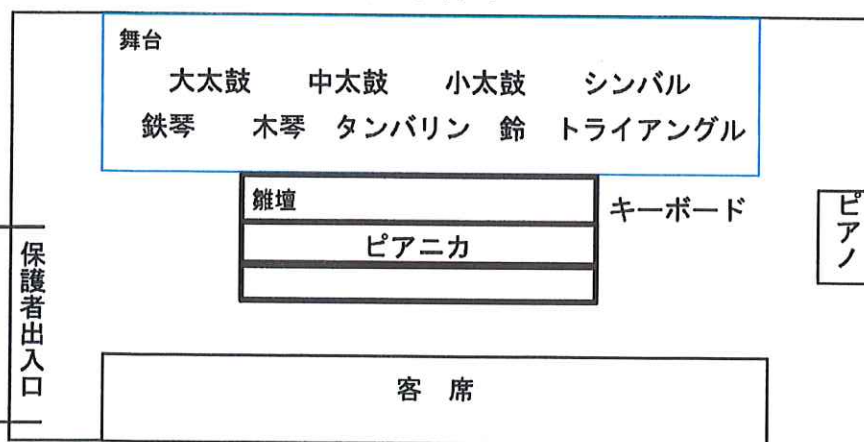 舞台
大太鼓 中太鼓 小太鼓 シンバル
鉄琴 木琴 タンバリン 鈴 トライアングル
雛壇 キーボード
ピアニカ
ピアノ
保護者出入口
客 席